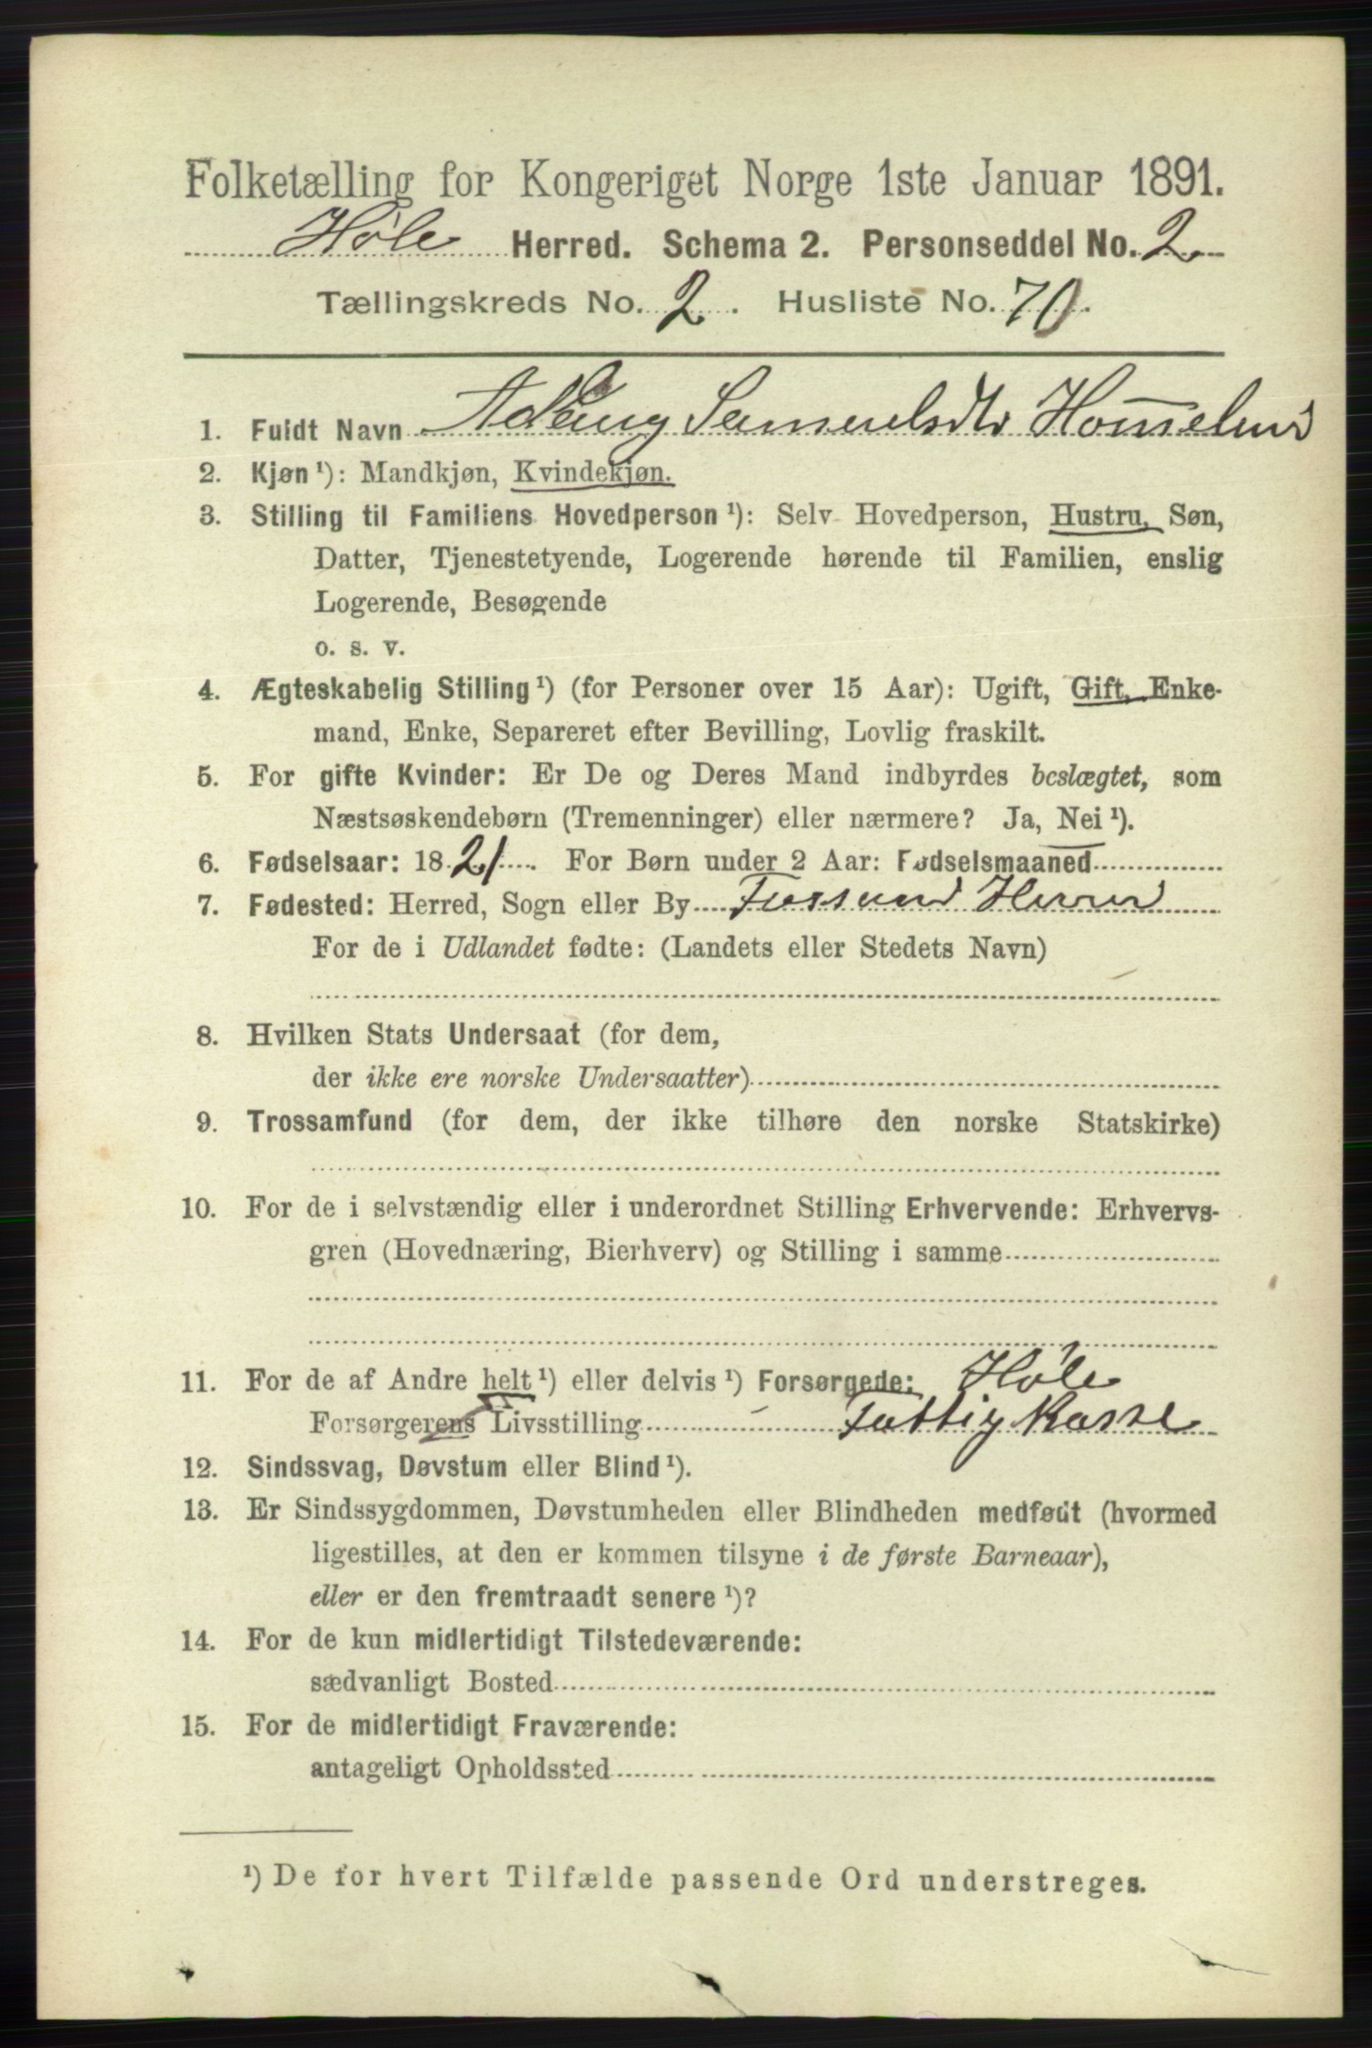 Folketælling for Kongeriget Norge 1ste Januar 1891.
Høle Herred. Schema 2. Personseddel No. 2
Tællingskreds No. 2. Husliste No. 70.
1. Fuldt Navn Samuelsdtr
2. Kjøn ¹): Mandkjøn, Kvindekjøn.
3. Stilling til Familiens Hovedperson ¹): Selv Hovedperson, Hustru, Søn,
Datter, Tjenestetyende, Logerende hørende til Familien, enslig
Logerende, Besøgende
o. s. v.
4. Ægteskabelig Stilling ¹) (for Personer over 15 Aar): Ugift, Gift, Enke-
mand, Enke, Separeret efter Bevilling, Lovlig fraskilt.
5. For gifte Kvinder: Er De og Deres Mand indbyrdes beslægtet, som
Næstsøskendebørn (Tremenninger) eller nærmere? Ja, Nei ¹).
6. Fødselsaar: 1821. For Børn under 2 Aar: Fødselsmaaned
7. Fødested: Herred, Sogn eller By Fossand Herred
For de i Udlandet fødte: (Landets eller Stedets Navn)
8. Hvilken Stats Undersaat (for dem,
der ikke ere norske Undersaatter)
9. Trossamfund (for dem, der ikke tilhøre den norske Statskirke)
10. For de i selvstændig eller i underordnet Stilling Erhvervende: Erhvervs-
gren (Hovednæring, Bierhverv) og Stilling i samme
11. For de af Andre helt ¹) eller delvis ¹) Forsørgede: Høle
Forsørgerens Livsstilling Fattig Kasse
12. Sindssvag, Døvstum eller Blind ¹).
13. Er Sindssygdommen, Døvstumheden eller Blindheden medfødt (hvormed
ligestilles, at den er kommen tilsyne i de første Barneaar),
eller er den fremtraadt senere ¹)?
14. For de kun midlertidigt Tilstedeværende:
sædvanligt Bosted
15. For de midlertidigt Fraværende:
antageligt Opholdssted
¹) De for hvert Tilfælde passende Ord understreges.